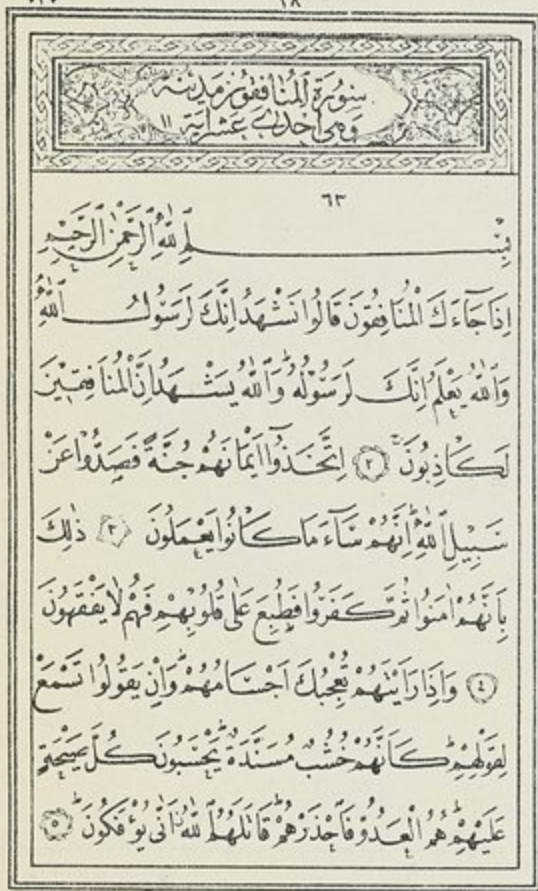 ١٨
سورة المنافقون مدنية
وهي احدى عشر اية ١١
٦٣
بِسْمِ اللّٰهِ الرَّحْمٰنِ الرَّحِيمِ
اِذَا جَآءَكَ الْمُنَافِقُونَ قَالُوا نَشْهَدُ اِنَّكَ لَرَسُولُ اللّٰهِ
وَاللّٰهُ يَعْلَمُ اِنَّكَ لَرَسُولُهُ وَاللّٰهُ يَشْهَدُ اِنَّ الْمُنَافِقِينَ
لَكَاذِبُونَ ﴿٢﴾ اِتَّخَذُوٓا اَيْمَانَهُمْ جُنَّةً فَصَدُّوا عَنْ
سَبِيلِ اللّٰهِ اِنَّهُمْ سَآءَ مَا كَانُوا يَعْمَلُونَ ﴿٣﴾ ذٰلِكَ
بِاَنَّهُمْ اٰمَنُوا ثُمَّ كَفَرُوا فَطُبِعَ عَلٰى قُلُوبِهِمْ فَهُمْ لَا يَفْقَهُونَ
﴿٤﴾ وَاِذَا رَاَيْتَهُمْ تُعْجِبُكَ اَجْسَامُهُمْ وَاِنْ يَقُولُوا تَسْمَعْ
لِقَوْلِهِمْ كَاَنَّهُمْ خُشُبٌ مُسَنَّدَةٌ يَحْسَبُونَ كُلَّ صَيْحَةٍ
عَلَيْهِمْ هُمُ الْعَدُوُّ فَاحْذَرْهُمْ قَاتَلَهُمُ اللّٰهُ اَنّٰى يُؤْفَكُونَ ﴿٥﴾